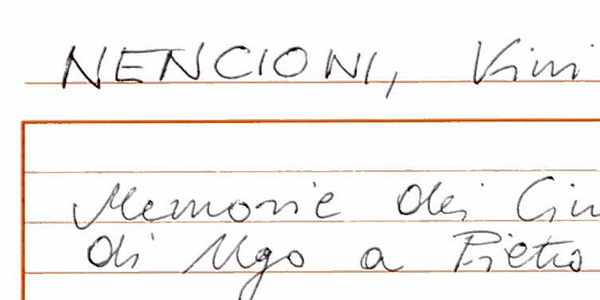 NENCIONI, Vini
Memorie dei Cin
di Ugo a Pietro